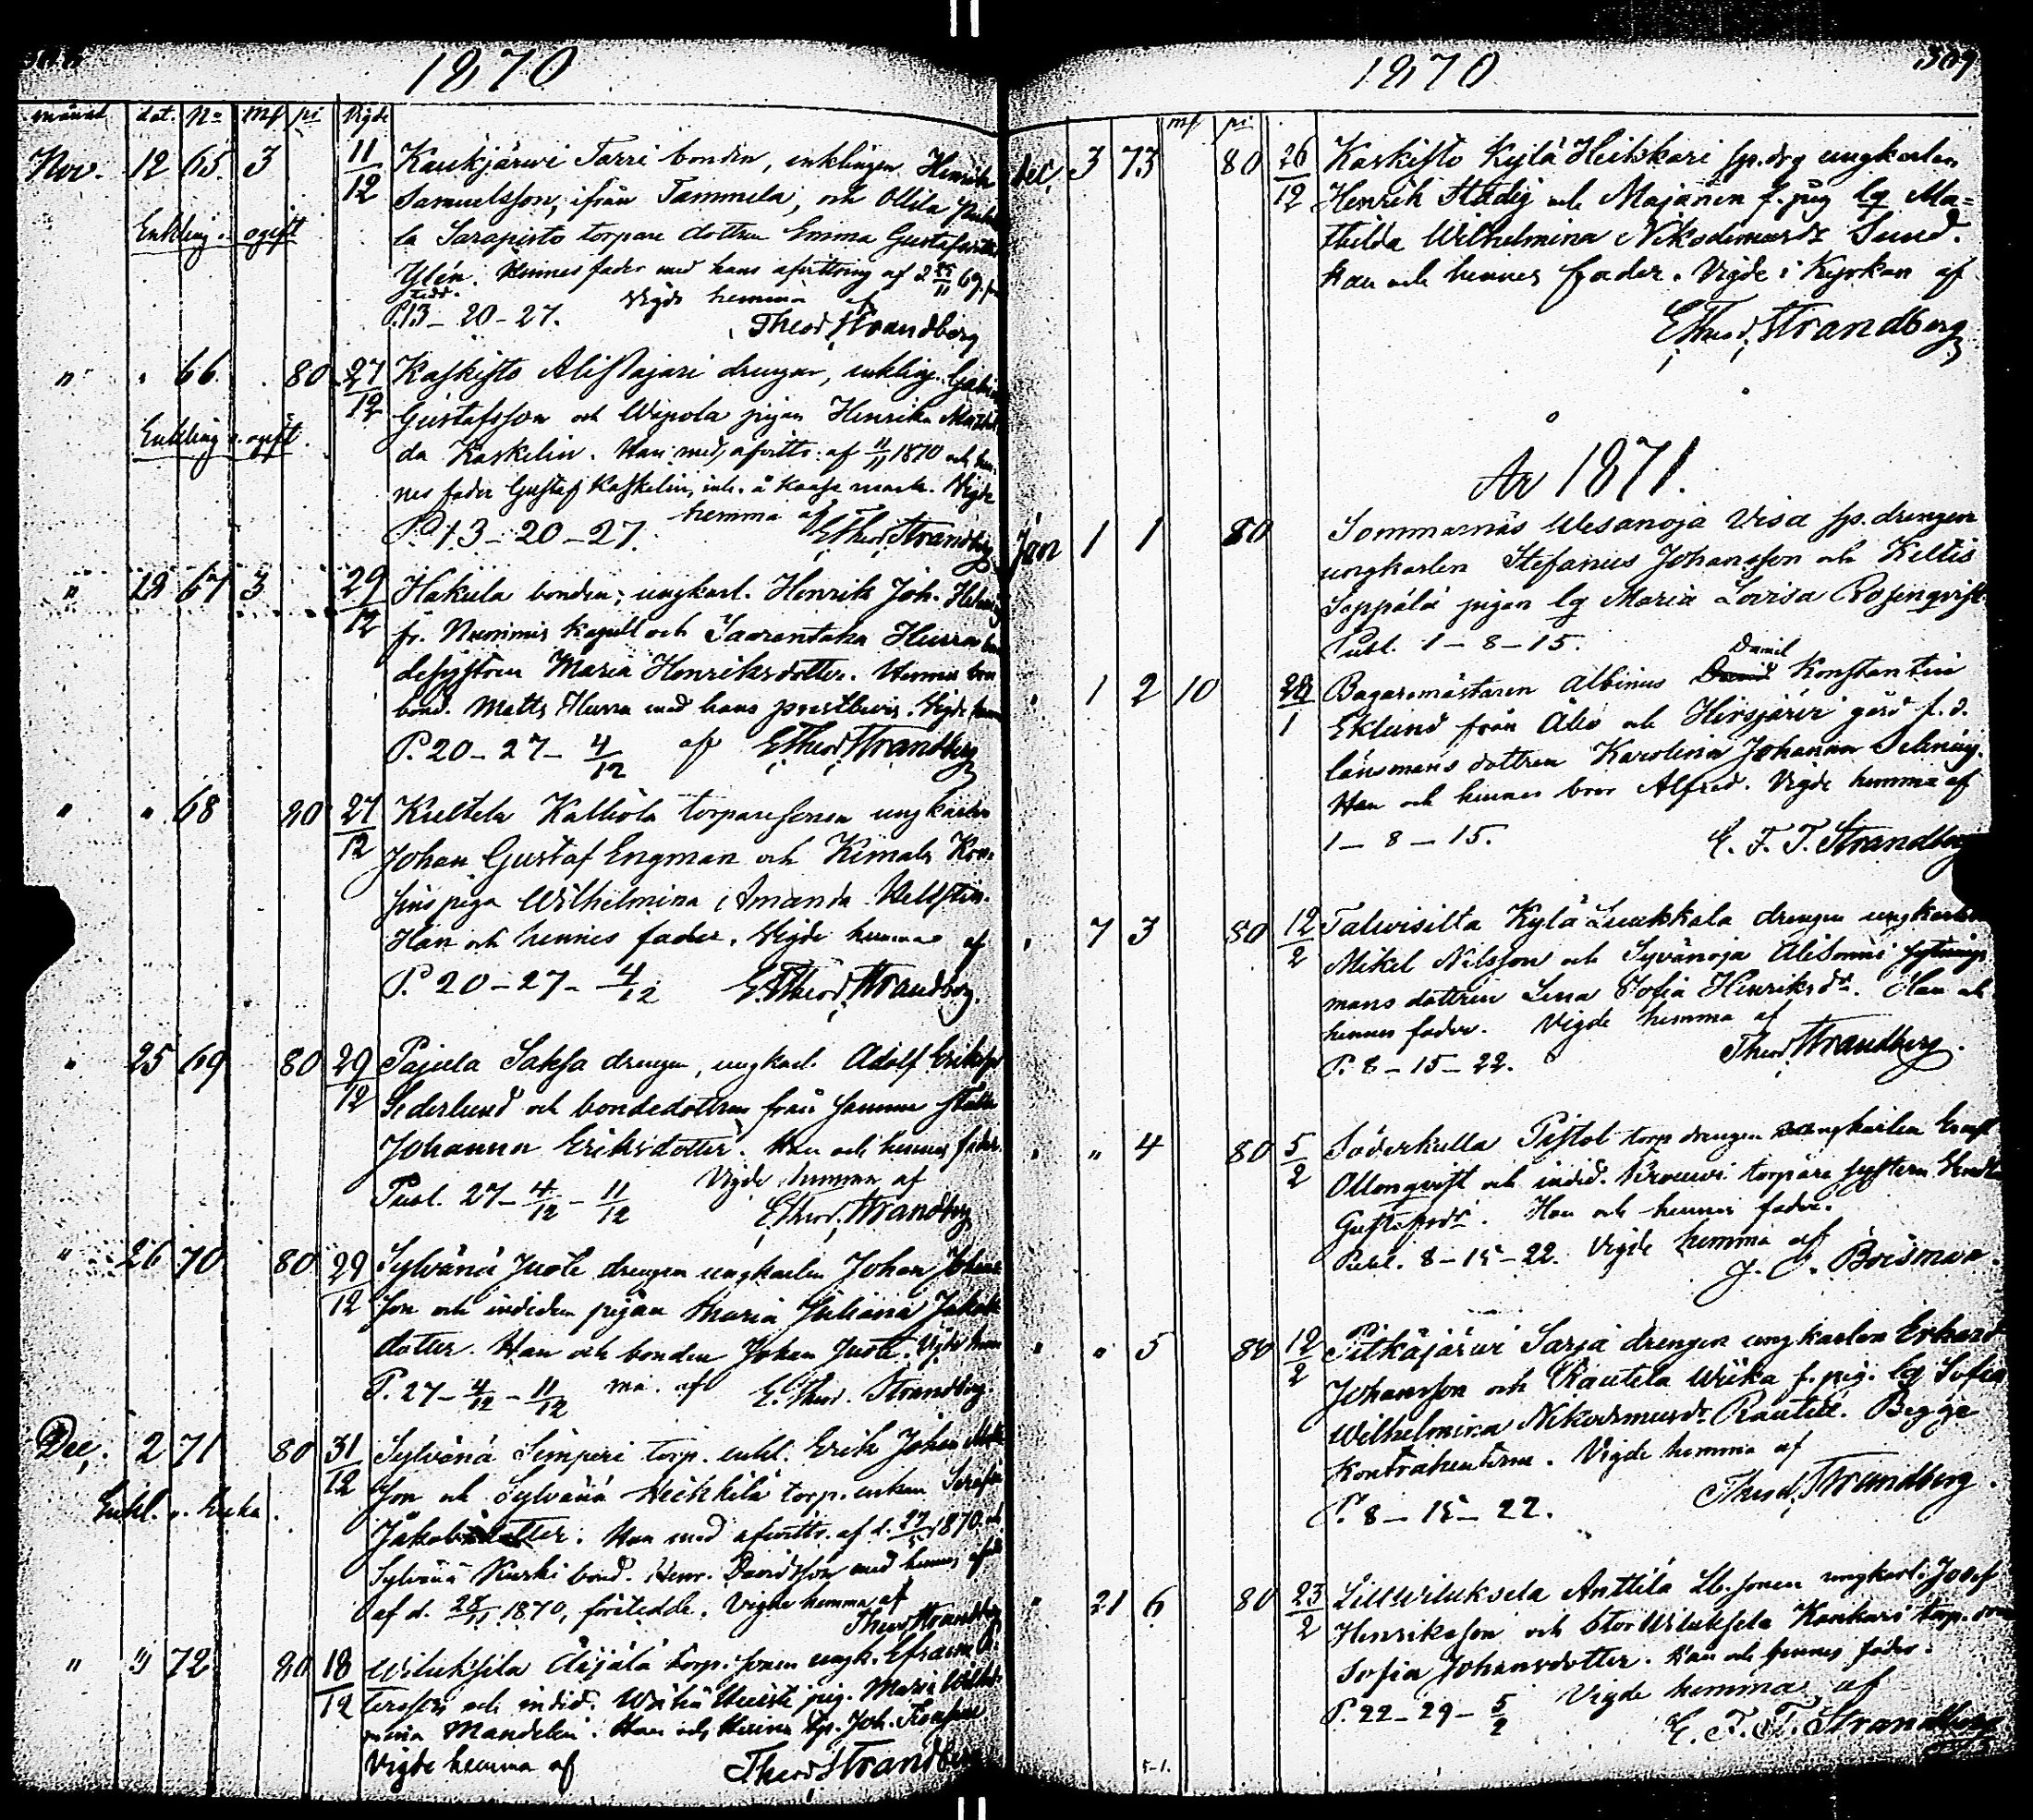 1870
månad dat. No mk pi Vigde
Nov. 12 65 3 11/12 Kaukjärwi Tarri bonden, enklingen Henrik
Samuelsson, ifrån Tammela, och Ollila
Enkling o. ogift
la Sarapisto torpare dottren Emma Gustafsdotter
Ylén. Hennes fader med hans afvittring af
P. 13 – 20 – 27. Vigde hemma af
Theod. Strandberg
" " 66 80 27/12 Kaskisto Alistajari drengen, enkling.
Gustafsson och Wäpola pigan Henrika
Enkling o. ogift.
da Kaskelin. Han med afvittr. af 11/11 1870 och hen-
nes fader Gustaf Kaskelin, inh. å Kaase mark. Vigde
hemma af
P. 13 – 20 – 27. E. Theod. Strandberg
" 19 67 3 29/12 Hakula bonden, ungkarl. Henrik Joh.
fr. Nummis kapell och Saarentaka Hurra bon
desystren Maria Henriksdotter.
bond. Matts Hurra med hans prestbevis. Vigde hemma
P. 20 – 27 – 4/12 af E. Theod. Strandberg
" " 68 80 27/12 Kultela Kalliola torparesonen ungkarlen
Johan Gustaf Engman och Kimala
piga Wilhelmina Amanda
Han och hennes fader. Vigde hemma af
P. 20 – 27 – 4/12 E. Theod. Strandberg.
" 25 69 80 29/12 Pajula Saksa drengen, ungkarl. Adolf Eriksson
Sederlund och bondedottren från samma ställe
Johanna Eriksdotter. Han och hennes fader.
Vigde hemma af
Publ. 27 – 4/12 – 11/12 E. Theod. Strandberg
" 26 70 80 29/12 Sylvänä Juote drengen ungkarlen Johan Johans
son och indiden pigan Maria Juliana Jakobs
dotter. Han och bonden Johan Juote. Vigde hem
ma af
P. 27 – 4/12 – 11/12 E. Theod. Strandberg.
Dec. 2 71 80 31/12 Sylvänä Simperi torp. enkl. Erik Johan
son och Sylvänä Heikkilä torp. enkan Serafia
Enkl. o. Enka.
Jakobsdotter. Han med afvittr. af d. 27/5 1870 och
Sylvänä Kurki bond. Henr. Davidsson med hennes
af d. 28/11 1870, företedde. Vigde hemma af
Theod. Strandberg
" 3 72 80 18/12 Wiluksela Äijälä torp. sonen ungk. Efraim
och indid. pig. Maria Wilhel
mina Mandelin. Han och Joh.
Vigde hemma af Theod. Strandberg
1870
309
mk pi
Dec. 3 73 80 26/12 Kaskisto Kylä Heikkari sp. drg ungkarlen
Henrik Städig och Majanen f. pig lg Ma=
thilda Wilhelmina Nikodemusdr Sund.
Han och hennes fader. Vigde i Kyrkan af
E. Theod. Strandberg
År 1871.
Jan 1 1 80 Sommarnäs Wesanoja Visa sp. drengen
ungkarlen Stefanus Johansson och Keltis
Seppälä pigan lg Maria Lovisa Rosenqvist.
Publ. 1 – 8 – 15.
Daniel
" 1 2 10 Bagaremästaren Albinus Konstantin
Eklund från Åbo och Hirsjärvi gård f.d.
länsmans dottren Karolina Johanna Selin
Han och hennes bror Alfred. Vigde hemma af
1 – 8 – 15. E. F. T. Strandberg
" 7 3 80 12/2 Talwisilta Kylä Luukkala drengen ungkarlen
Mikel Nilsson och Syvänoja Alisonni
mans dottren Lena Sofia Henriksdr. Han och
hennes fader. Vigde hemma af
P. 8 – 15 – 22. Theod. Strandberg.
" " 4 80 5/2 Söderkulla Pistol torp drengen ungkarlen
Ollonqvist och indid. torpare systern
Gustafsdr. Han och hennes fader.
Publ. 8 – 15 – 22. Vigde hemma af
J. Boisman.
" " 5 80 12/2 Pitkäjärwi Sarja drengen ungkarlen Erhard
Johansson och Rautela Wiika f. pig. lg Sofia
Wilhelmina Nikodemusdr Rautell. Begge
Kontrahenterna. Vigde hemma af
P. 8 – 15 – 22. Theod. Strandberg.
" 21 6 80 23/2 Lillwiluksela Anttila sonen ungkarl. Josef
Henriksson och StorWiluksela Kankari torp. dottren
Sofia Johansdotter. Han och hennes fader.
P. 22 – 29 – 5/2 Vigde hemma af
E. F. T. Strandberg